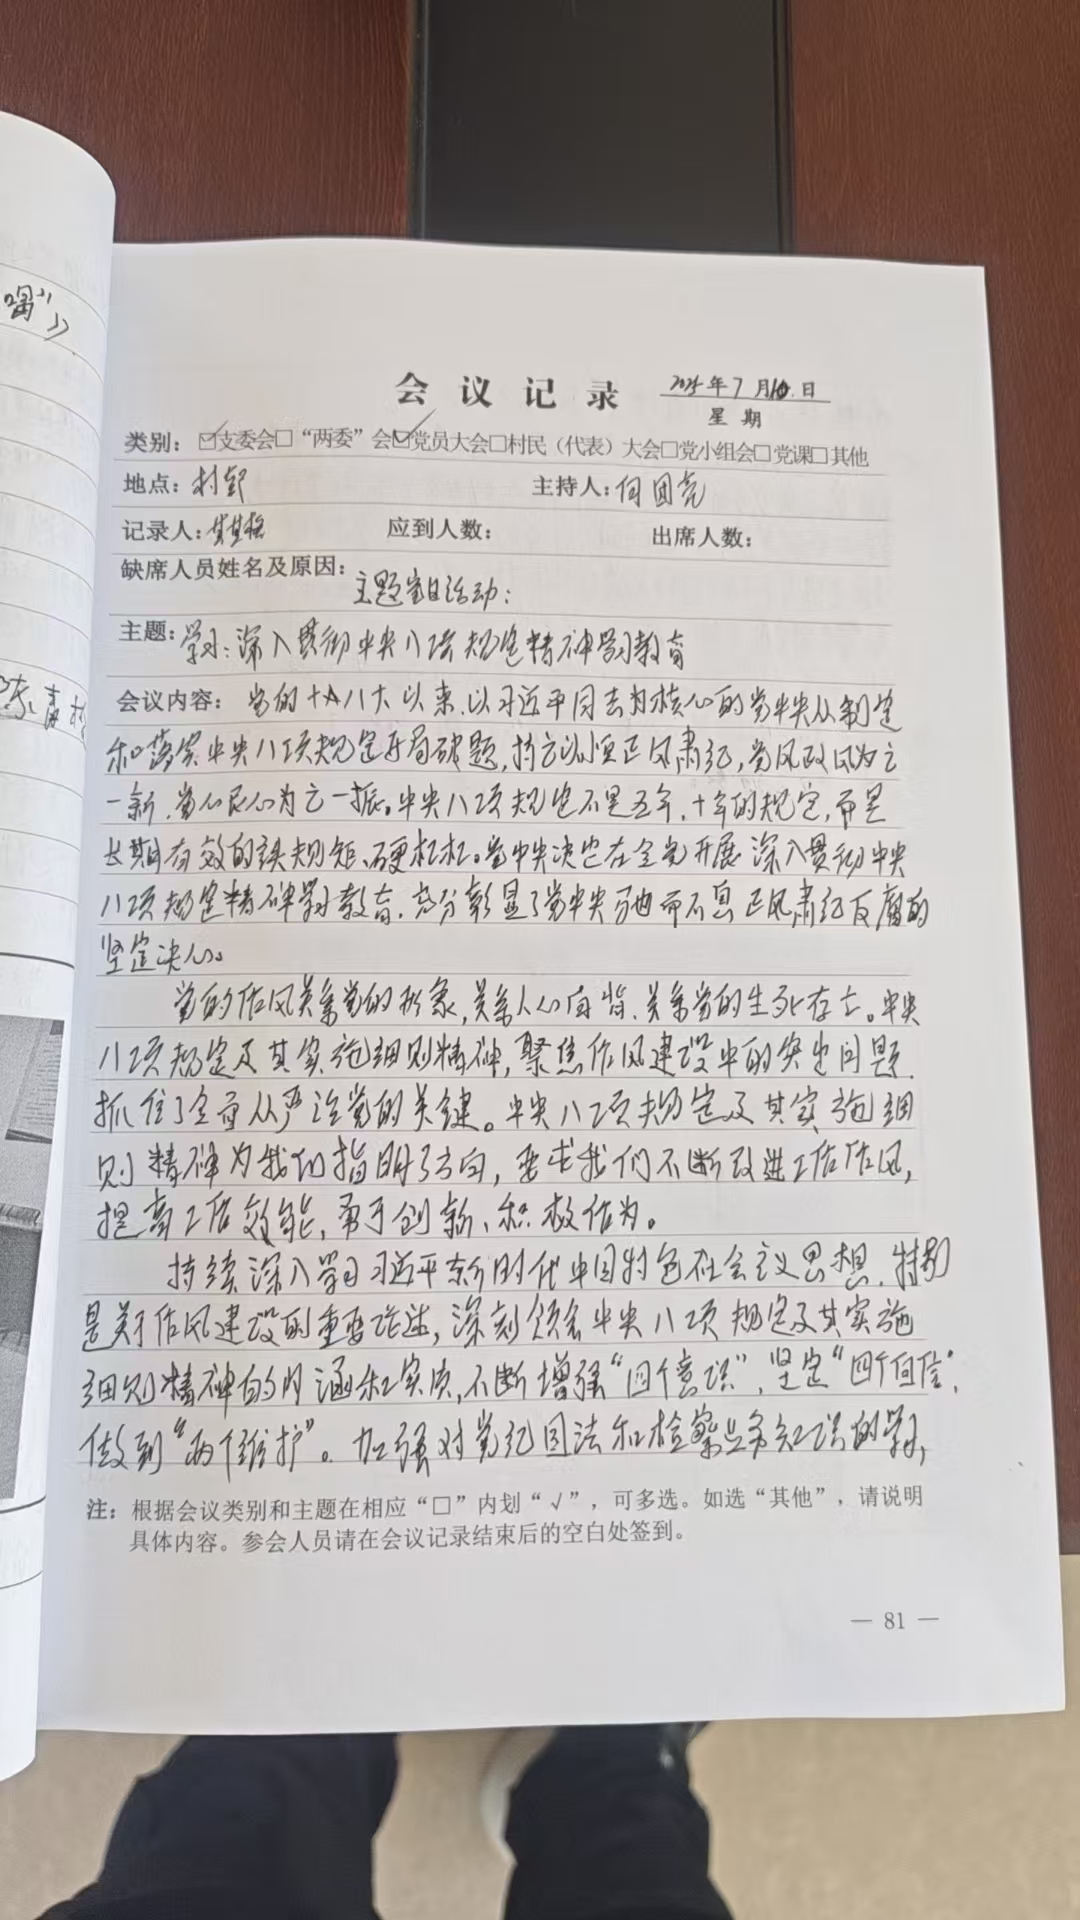 会议记录 2025年7月10日
星期
类别：☑支委会□“两委”会☑党员大会□村民（代表）大会□党小组会□党课□其他
地点：村部 主持人：何国亮
记录人： 应到人数： 出席人数：
缺席人员姓名及原因：
主题党日活动：
主题：学习：深入贯彻中央八项规定精神学习教育
会议内容：党的十八大以来，以习近平同志为核心的党中央从制定
和落实中央八项规定开局破题，持之以恒正风肃纪，党风政风为之
一新，党心民心为之一振。中央八项规定不是五年、十年的规定，而是
长期有效的铁规矩、硬杠杠。党中央决定在全党开展深入贯彻中央
八项规定精神学习教育，充分彰显了党中央驰而不息正风肃纪反腐的
坚定决心。
党的作风关系党的形象，关系人心向背，关系党的生死存亡。中央
八项规定及其实施细则精神，聚焦作风建设中的突出问题，
抓住了全面从严治党的关键。中央八项规定及其实施细
则精神为我们指明了方向，要求我们不断改进工作作风，
提高工作效能，勇于创新、积极作为。
持续深入学习习近平新时代中国特色社会主义思想，特别
是关于作风建设的重要论述，深刻领会中央八项规定及其实施
细则精神的内涵和实质，不断增强“四个意识”、坚定“四个自信”、
做到“两个维护”。加强对党纪国法和检察业务知识的学习，
注：根据会议类别和主题在相应“□”内划“√”，可多选。如选“其他”，请说明
具体内容。参会人员请在会议记录结束后的空白处签到。
— 81 —